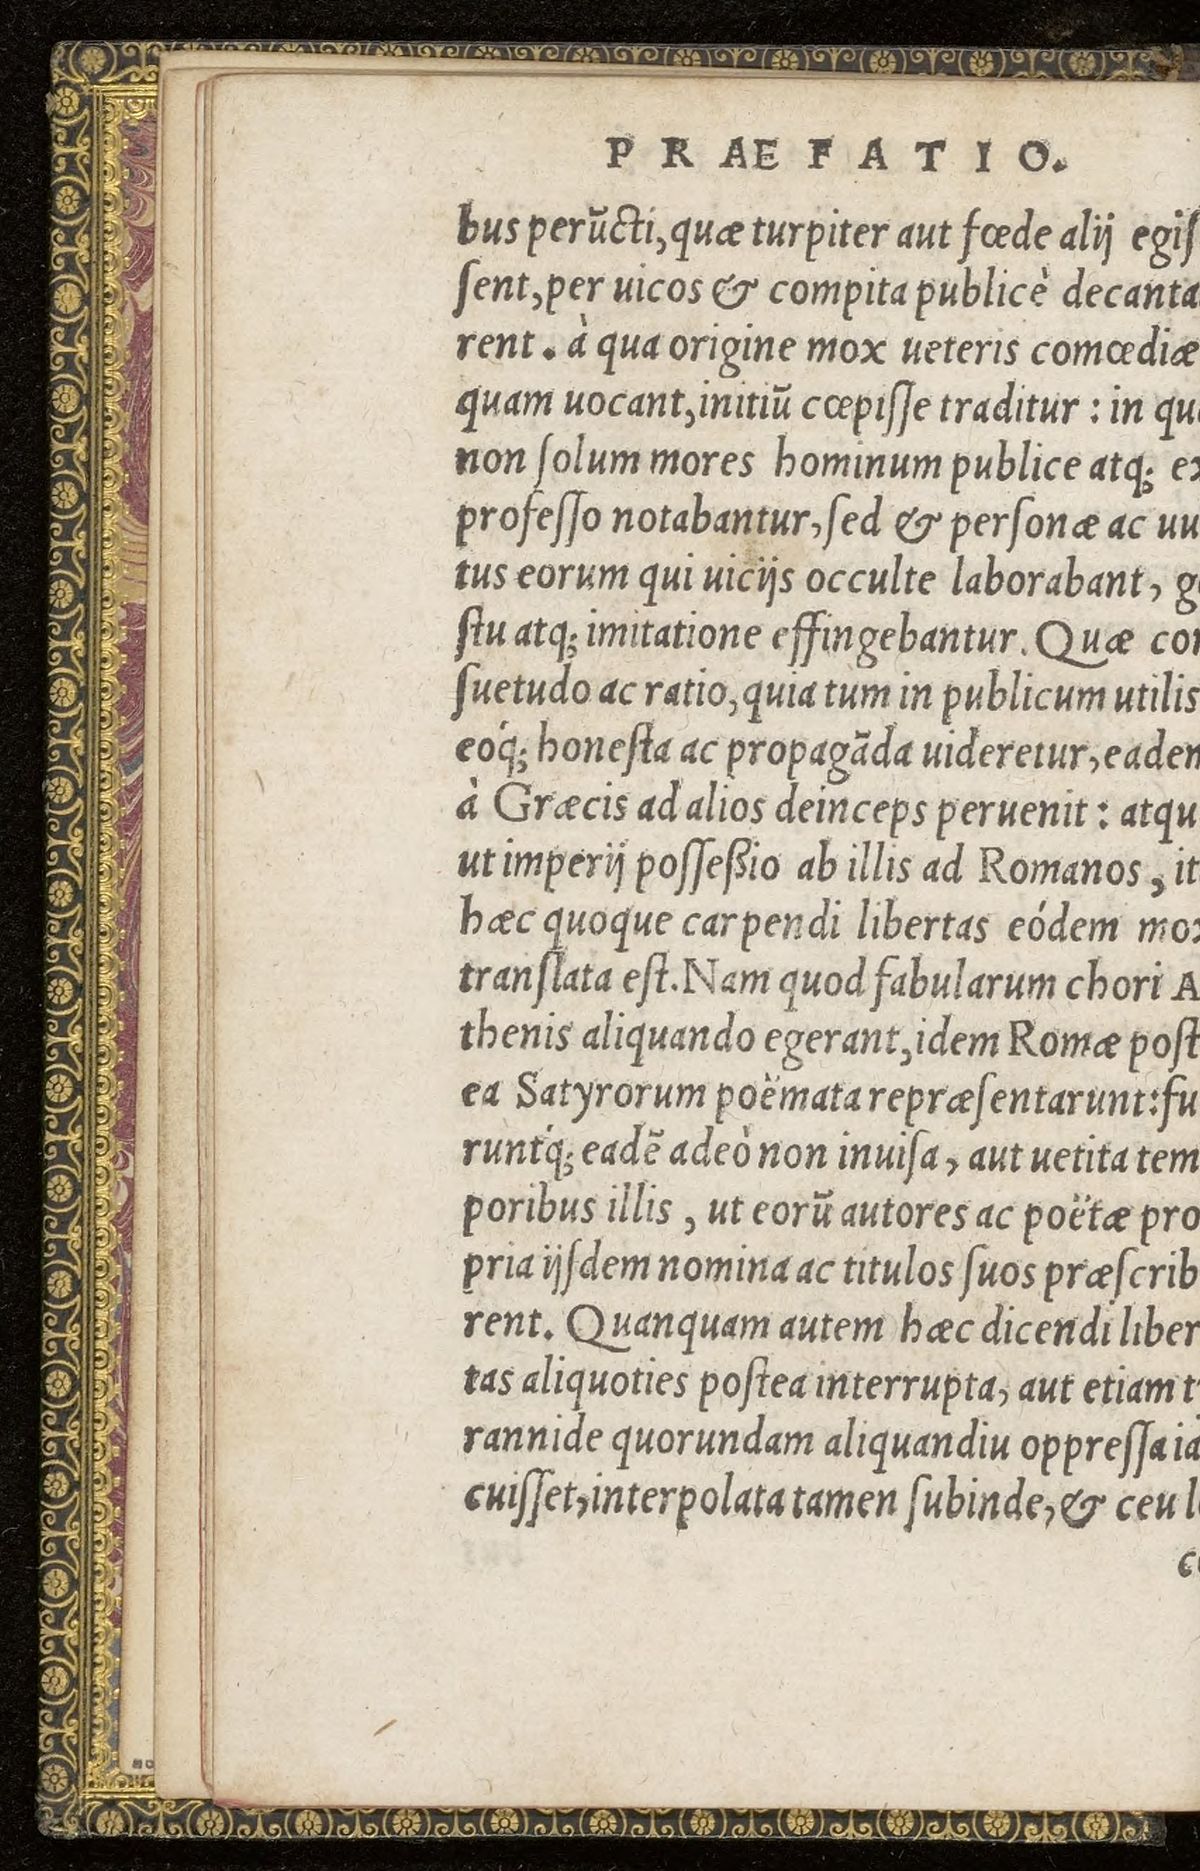 PRAEFATIO.
bus perũcti, quæ turpiter aut fœde alij egiſ
ſent, per uicos & compita publicè decanta
rent. à qua origine mox ueteris comœdiæ
quam uocant, initiũ cœpiſſe traditur : in qu
non ſolum mores hominum publice atq; ex
profeſſo notabantur, ſed & perſonæ ac uu
tus eorum qui uicijs occulte laborabant, g
ſtu atq; imitatione effingebantur. Quæ con
ſuetudo ac ratio, quia tum in publicum utilis
eóq; honeſta ac propagãda uideretur, eadem
à Græcis ad alios deinceps peruenit : atqu
ut imperij poſſeßio ab illis ad Romanos, it
hæc quoque carpendi libertas eódem mox
tranſlata eſt. Nam quod fabularum chori A
thenis aliquando egerant, idem Romæ poſt
ea Satyrorum poëmata repræſentarunt: fu
runtq́; eadẽ adeò non inuiſa, aut uetita tem
poribus illis, ut eorũ autores ac poëtæ pro
pria ijſdem nomina ac titulos ſuos præſcrib
rent. Quanquam autem hæc dicendi liber
tas aliquoties poſtea interrupta, aut etiam t
rannide quorundam aliquandiu oppreſſa ia
cuiſſet, interpolata tamen ſubinde, & ceu l